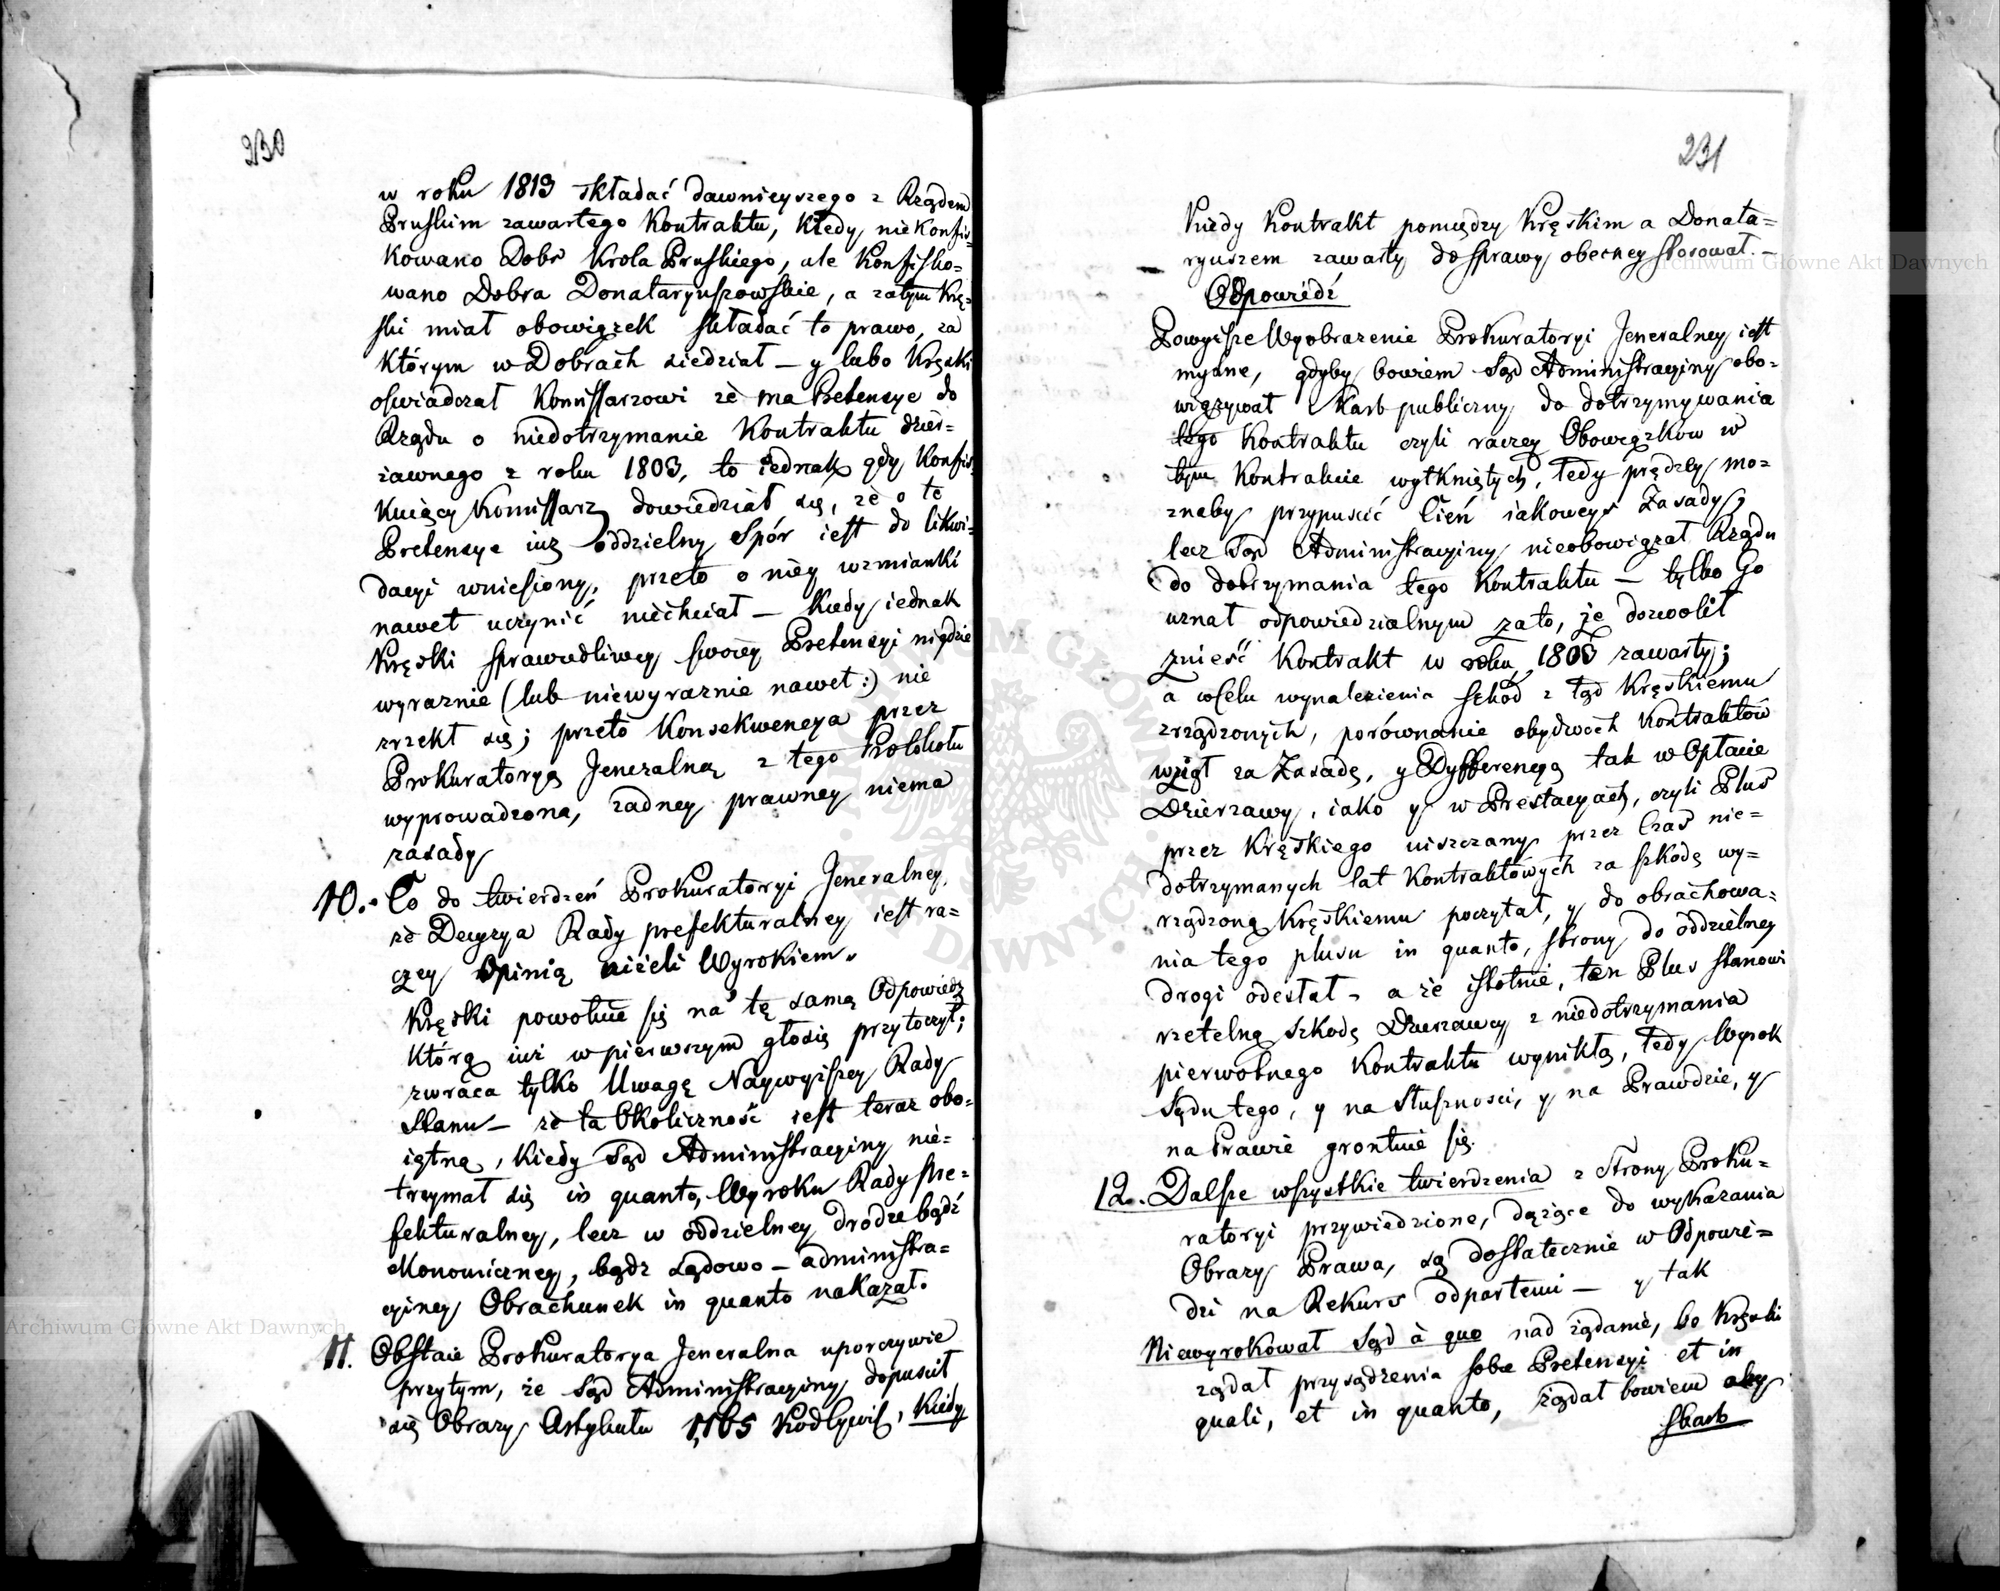 230
w roku 1813 składać dawnieyszego z Rządem
Pruskim zawartego Kontraktu, kiedy nie konfis-
kowano Dobr Krola Pruskiego, ale konfisko-
wano Dobra Donataryuszowskie, a zatym Krę-
ski miał obowiązek składać to prawo, za
którym w Dobrach siedział – y lubo Kręski
oświadczał Kommissarzowi że ma Pretensye do
Rządu o niedotrzymanie Kontraktu dzier-
żawnego z roku 1803, to iednak gdy Konfis-
kuiący Kommissarz dowiedział się, że o te
Pretensye iuż oddzielny Spór iest do likwi-
dacyi wniesiony, przeto o niey wzmianki
nawet uczynić niechciał – Kiedy iednak
Kręski sprawiedliwey swoiey Pretensyi nigdzie
wyraznie (lub niewyraznie nawet:) nie
zrzekł się; przeto Konsekwencya przez
Prokuratoryą Jeneralną z tego Protokołu
wyprowadzona, żadney prawney niema
zasady
10. Co do twierdzeń Prokuratoryi Jeneralney,
że Decyzya Rady prefekturalney iest ra-
czey Opinią niżeli Wyrokiem.
Kręski powołuie się na tę samą Odpowiedz
którą iuż w pierwszym głosie przytoczył;
zwraca tylko Uwagę Naywyiszey Rady
Stanu – że ta Okoliczność iest teraz obo-
iętną, kiedy Sąd Administracyiny nie-
trzymał się in quanto, Wyroku Rady Pre-
fekturalney, lecz w oddzielney drodze bądź
ekonomiczney, bądz sądowo – administra-
cyiney Obrachunek in quanto nakazał.
11. Obstaie Prokuratorya Jeneralna uporczywie
przytym, że Sąd Administracyiny dopuscił
się Obrazy Artykułu 1,165 Kod: Cywil, Kiedy
231
Kiedy Kontrakt pomiędzy Kręskim a Donata-
ryuszem zawarty do sprawy obecney stosował. –
Odpowiedź
Powyisze Wyobrazenie Prokuratoryi Jeneralney iest
mylne, gdyby bowiem Sąd Administracyiny obo-
wiązywał Skarb publiczny do dotrzymywania
tego Kontraktu czyli raczey Obowiązków w
tym Kontrakcie wytkniętych, tedy prędzey mo-
znaby przypuscić Cień iakoweys Zasady,
lecz Sąd Administracyiny nieobowiązał Rządu
do dotrzymania tego Kontraktu – tylko Go
uznał odpowiedzialnym za to, że dozwolił
znieść Kontrakt w roku 1803 zawarty;
a w Celu wynalezienia Szkód z tąd Kręskiemu
zrządzonych, porównanie obydwóch Kontraktów
wziął za Zasadę, y Dyfferencyą tak w Opłacie
Dzierzawy, iako y w Prestacyach, czyli Plus
przez Kręskiego uiszczany przez Czas nie-
dotrzymanych lat Kontraktowych za szkodę wy-
rządzoną Kręskiemu poczytał, y do obrachowa-
nia tego plusu in quanto, strony do oddzielney
drogi odesłał – a że istotnie, ten Plus stanowi
rzetelną szkodę Dzierzawcy z niedotrzymania
pierwotnego Kontraktu wynikłą, tedy Wyrok
Sądu tego, y na Słuszności, y na Prawdzie, y
na Prawie grontuie się.
12. Dalsze wszystkie twierdzenia z Strony Proku-
ratoryi przywiedzione, dążące do wykazania
Obrazy Prawa, są dostatecznie w Odpowie-
dzi na Rekurs odpartemi – y tak
Niewyrokował Sąd à quo nad żądanie, bo Kręski
żądał przysądzenia sobie Pretensyi et in
quali, et in quanto, żądał bowiem aby
Skarb
Archiwum Główne Akt Dawnych
Archiwum Główne Akt Dawnych